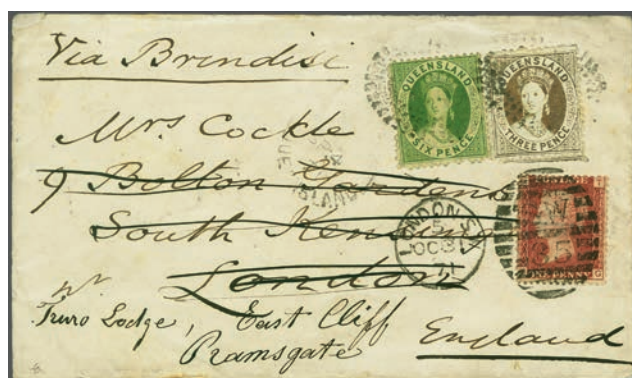 Via Brindisi
QUEENSLAND
SIX PENCE
QUEENSLAND
THREE PENCE
Mrs. Cockle
9 Bolton Gardens
South Kensing
London
LONDON S.W
5
OC 3
71
W
35
Truro Lodge, East Cliff
Ramsgate
England